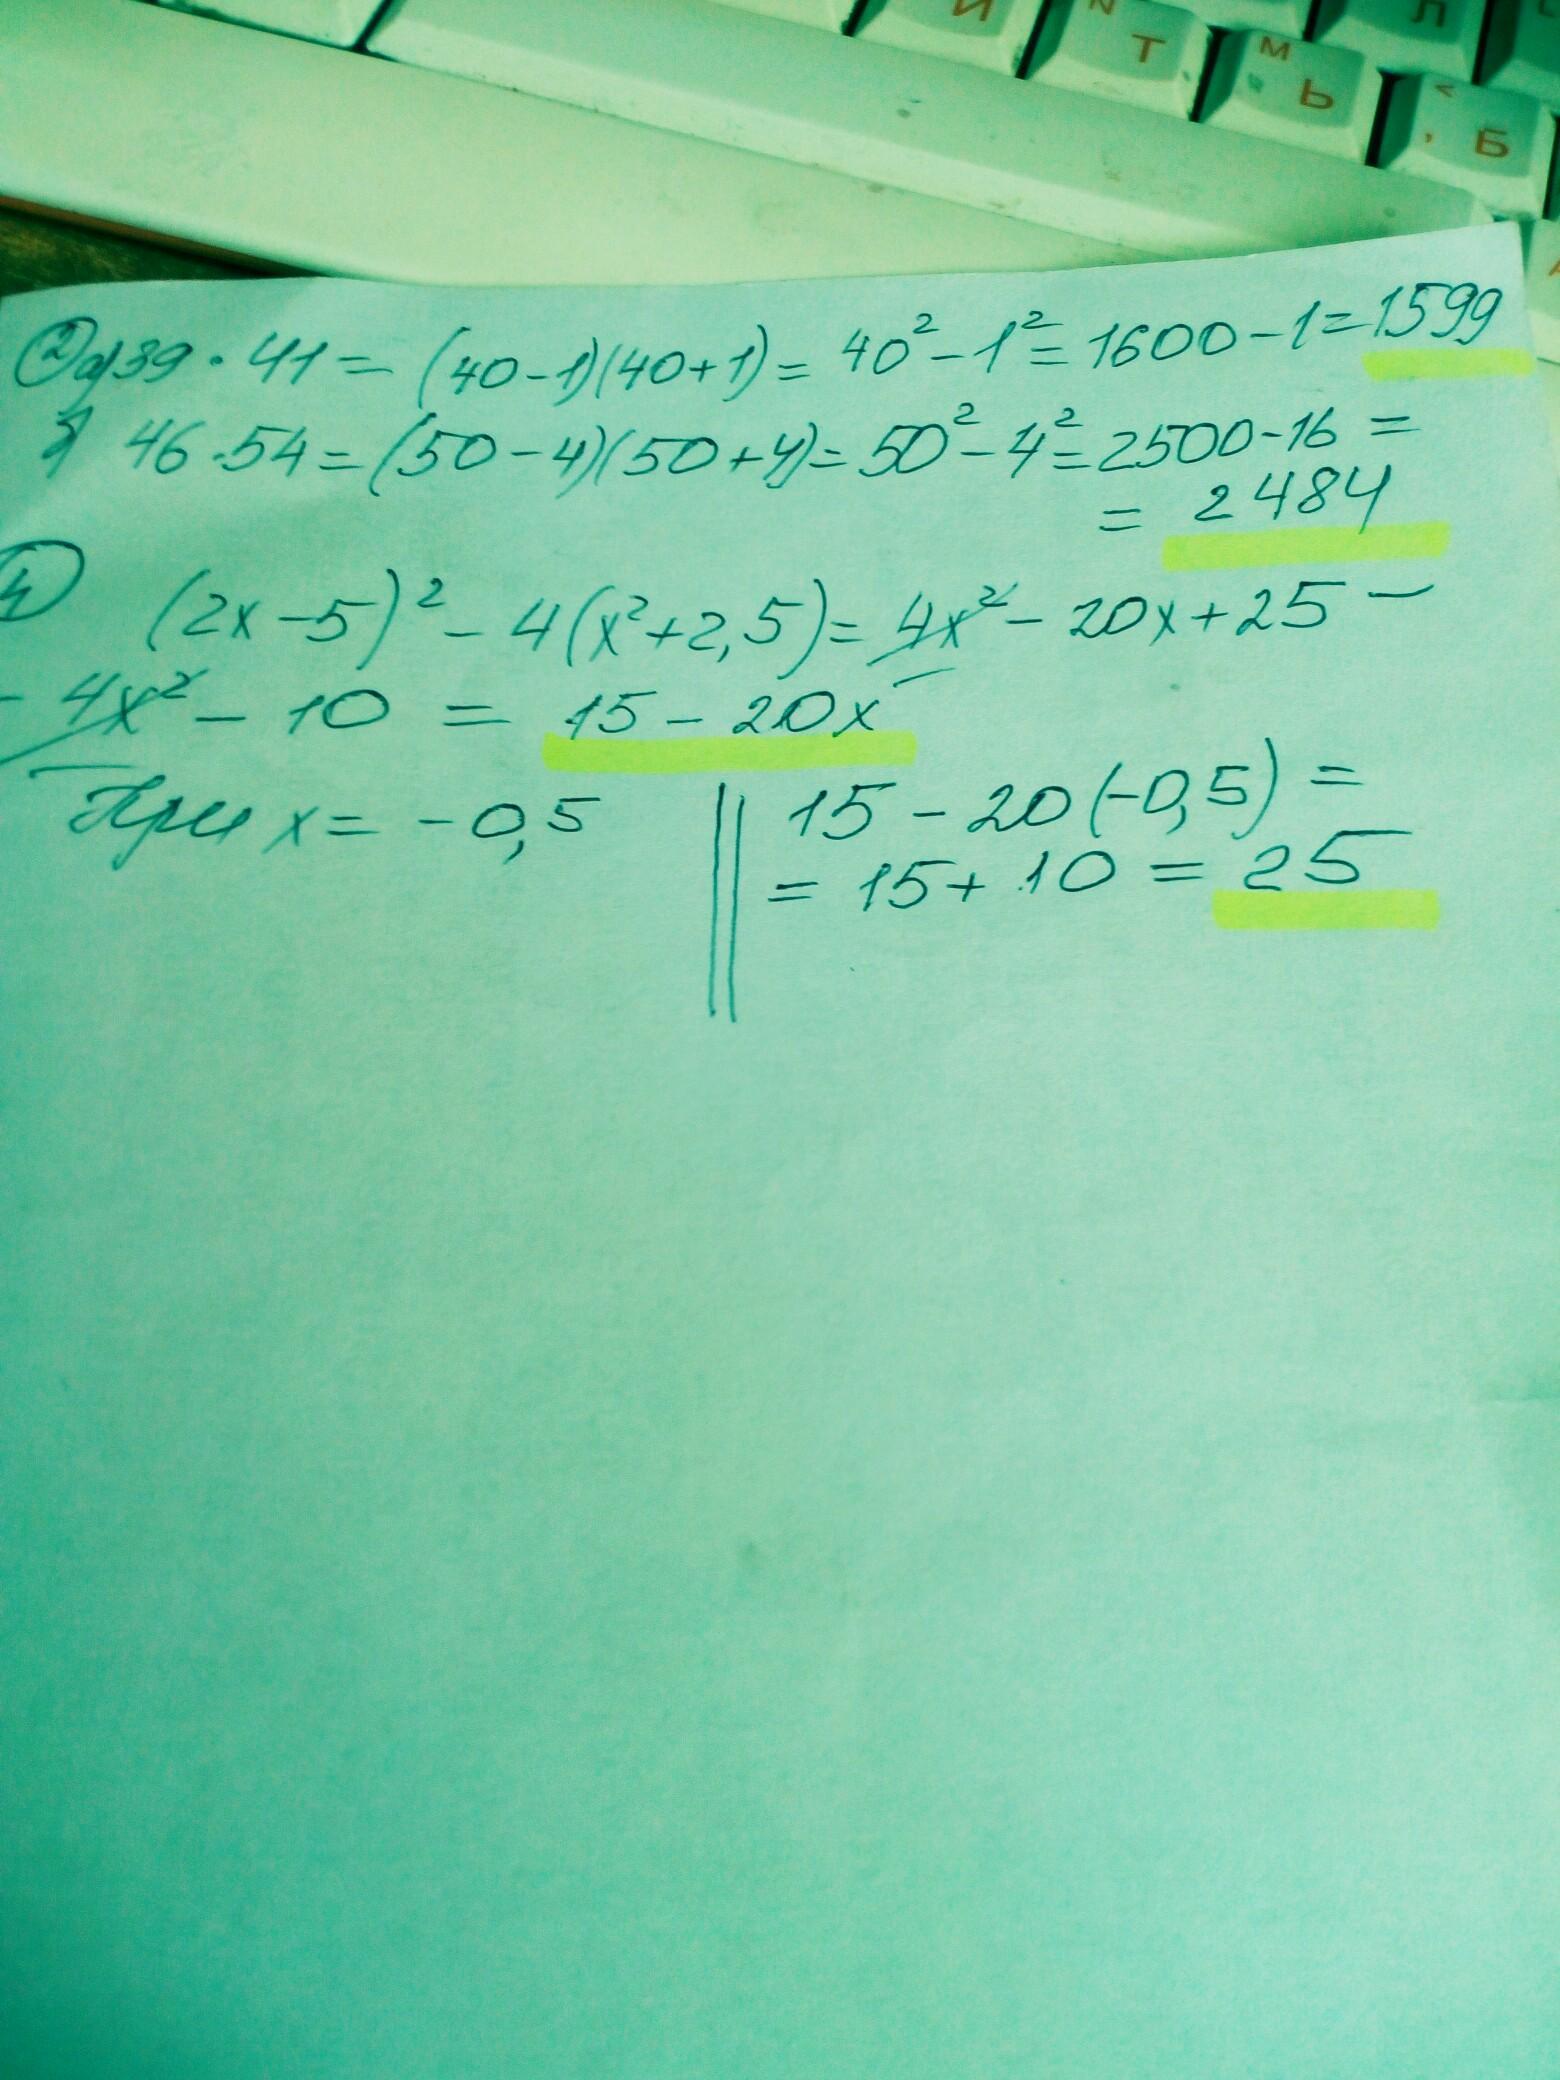 И N Т М Ь Л < , Б
② а) 39 · 41 = (40-1)(40+1) = 40² - 1² = 1600 - 1 = 1599
46 · 54 = (50 - 4)(50 + 4) = 50² - 4² = 2500 - 16 =
= 2484
④ (2x - 5)² - 4(x² + 2,5) = 4x² - 20x + 25 -
- 4x² - 10 = 15 - 20x
При x = -0,5
15 - 20(-0,5) =
= 15 + 10 = 25